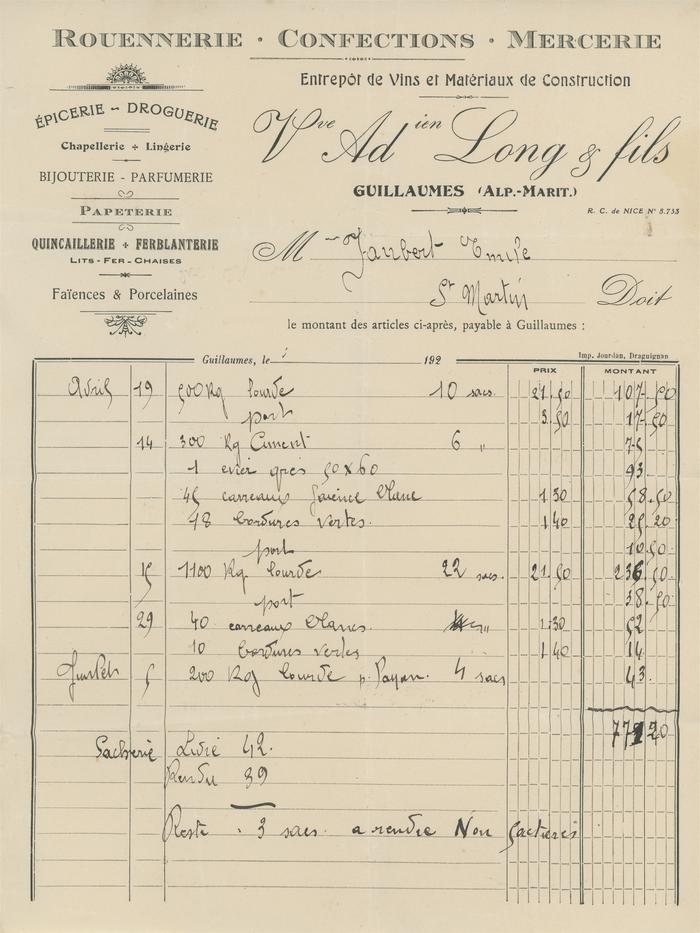 ROUENNERIE · CONFECTIONS · MERCERIE
Entrepôt de Vins et Matériaux de Construction
ÉPICERIE - DROGUERIE
Chapellerie + Lingerie
BIJOUTERIE - PARFUMERIE
PAPETERIE
QUINCAILLERIE + FERBLANTERIE
LITS-FER-CHAISES
Faïences & Porcelaines
Vve Adien Long & fils
GUILLAUMES (ALP.-MARIT.)
R. C. de NICE N° 5.733
M Jaubert Emile
St Martin Doit
le montant des articles ci-après, payable à Guillaumes :
Guillaumes, le 192
Imp. Jourdan, Draguignan
PRIX MONTANT
Avril 19 500 Kg lourde 10 sacs. 21.50 107.50
port 3.50 17.50
14 300 Kg Ciment 6 " 75
1 evier grès 50 x 60 93
45 carreaux faïence blanc 1 30 58.50
18 bordures vertes. 1 40 25.20
port 10.50
15 1100 Kg. lourde 22 sacs. 21.50 236.50
port 38.50
29 40 carreaux blancs. 1.30 52
10 bordures vertes 1 40 14
5 200 Kg lourde p. Payan. 4 sacs 43.
20
Sacherie Livré 42.
Rendu 39
Reste . 3 sacs. a rendre Non factures